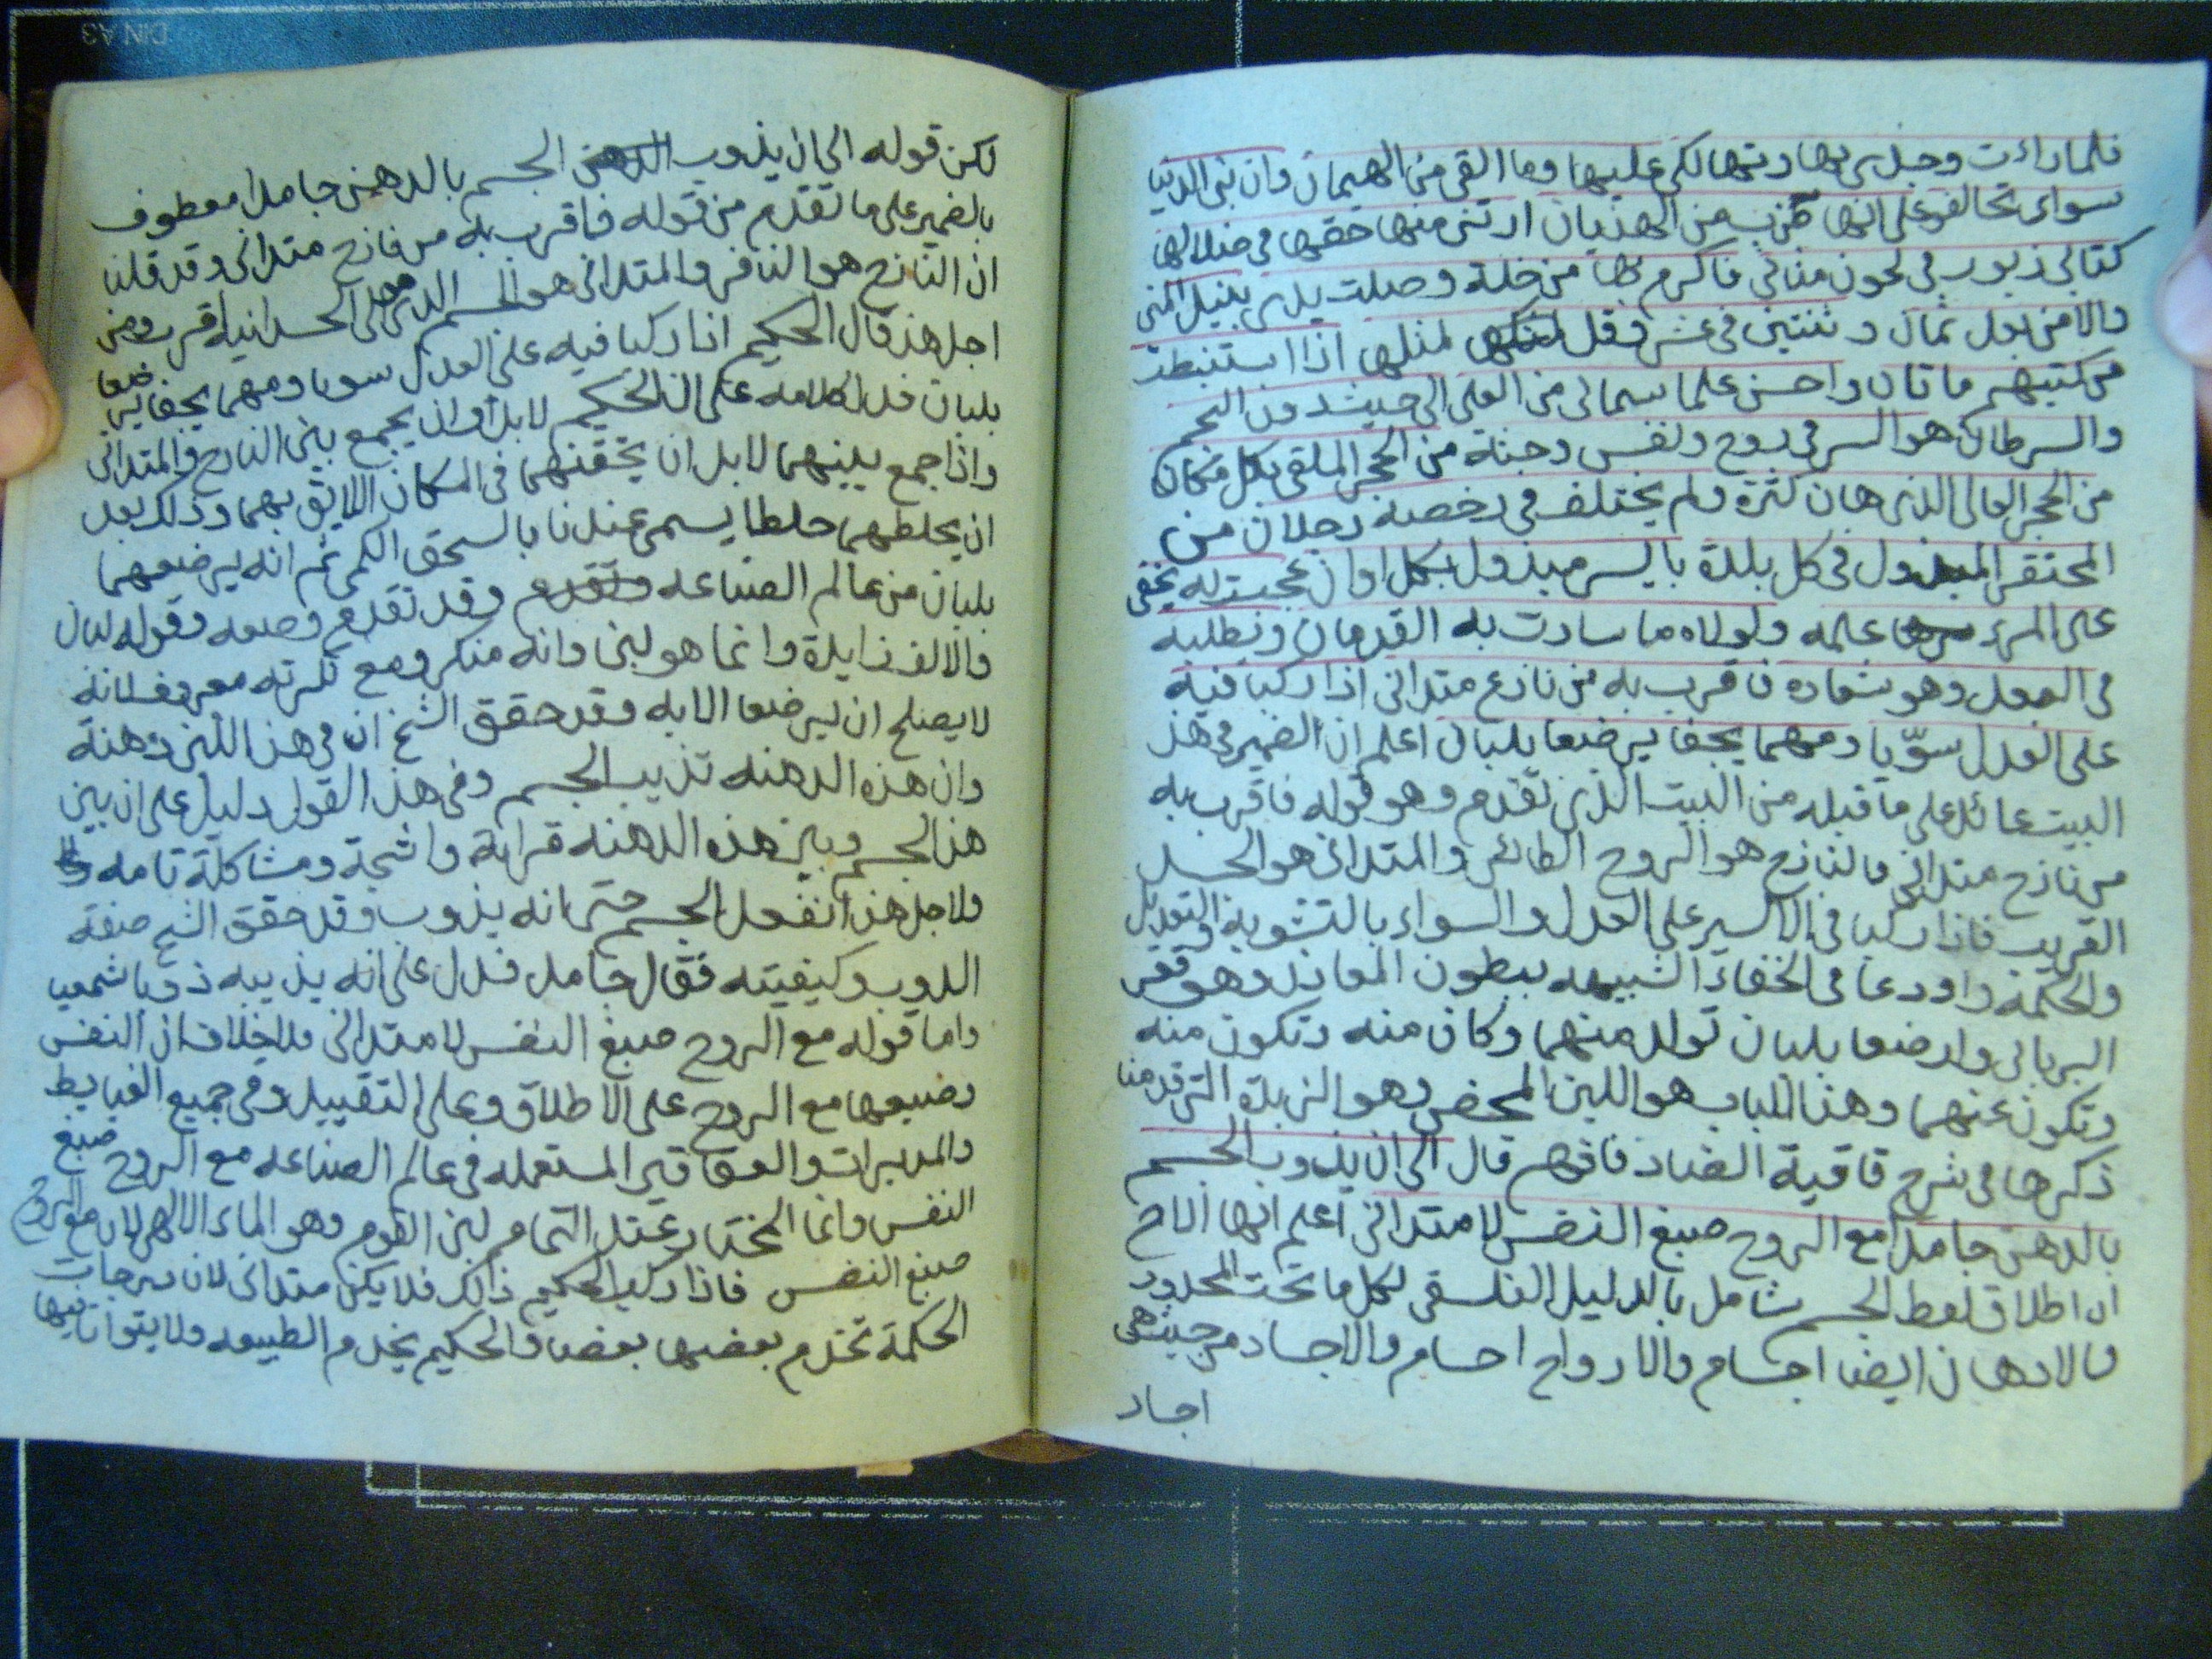 فلما رأءت وجدي بها وتهالكي عليها وما القي من الهيمان وان بني الدنيا
سواي تحالفو على انها ضرب من الهذيان ارتني منها حقها في ضلالها
كتابي زبور في لحون مثاني فاكرم بها من خلة وصلت يدي بنيل المنى
والامن بعد ثمان وثنتين في عشر وقل لمثلها اذا استنبطت
من كتبهم ماتان واحسن علما سمالي من العلى الى حيث دون النجم
والسرطان هو السر في روح ونفس وجثة من الحجر الملقى بكل مكان
من الحجر العالي الذي هان كثرة ولم يختلف في رخصه رجلان من
المحتقر المبذول في كل بلدة باليسر مبذول بكل اوان عجبت له يخفى
على المرء علمه ولولاه ما سارت به القدمان ويطلبه
في البعد وهو شعاره فاقرب به من نازح متداني اذا ركبا فيه
على العدل سوّيا ومهما يجفا يرضعا بلبان اعلم ان الضمير في هذ
البيت عائد على ما قبله من البيت الذي تقدم وهو قوله فاقرب به
من نازح متداني فالنازح هو الروح الطائر والمتداني هو الجسد
القريب فاذا ركبا في الاكسير على العدل والسواء بالتشوية والتعديل
والحكمة واودعا في الخفاء الشبيهه ببطون المعادن وهو قعر
البرباني وارضعا بلبان تولد منهما وكان منه وتكون منه
وتكون عنهما وهذا اللباب هو اللبن المحض وهو الزبدة التي قدمنا
ذكرها في شرح قافية الضاد فافهم قال الى ان يذوب الجسم
بالدهن جامدا مع الروح صبغ النفس لا متداني اعلم ايها الاخ
ان اطلاق لفظ الجسم شامل بالدليل الفلسفي لكل ما تحت المحدود
فالادهان ايضا اجسام والارواح اجسام والاجساد من حيث هي
اجساد
لكن قوله الى ان يذوب الجسم بالدهن جامدا معطوف
بالضمير على ما تقدم من قوله فاقرب به من نازح متداني وقد قلنا
ان النازح هو النافر والمتداني هو الجسم الذي هو الى الجسدانيه اقرب ومن
اجل هذ قال الحكيم اذا ركبا فيه على العدل سويا ومهما يجفا يرضعا
بلبان فدل كلامه على ان الحكيم لا بد وان يجمع بين النازح والمتداني
واذا جمع بينهما لا بد ان يحقنهما في المكان الايق بهما وذلك بعد
ان يخلطهما خلطا يسمى عندنا بالسحق الكمي ثم انه يرضعهما
بلبان من عالم الصناعه وقد تقدم وصفه وقوله لبان
والالف زايدة وانما هو لبن وانه منكر ومع نكرته معروف لانه
لا يصلح ان يرضعا الا به وقد حقق الشيخ ان في هذا اللبن دهنة
وان هذه الدهنه تذيب الجسم وفي هذ القول دليل على ان بين
هذ الجسم وبين هذه الدهنه قرابة واشجة ومشاكلة تامه
ولاجل هذا انفعل الجسم حتى انه يذوب وقد حقق الشيخ صفة
الذوب وكيفيته فقال جامد فدل على انه يذيبه ذوبا شمعيا
واما قوله مع الروح صبغ النفس لا متداني فلا خلاف ان النفس
وصبغها مع الروح على الاطلاق وعلى التقييد وفي جميع الضابط
والمدبرات والعقاقير المستعمله في عالم الصناعه مع الروح صبغ
النفس وانما المختار عند التمام لبن القوم وهو الماء الالهي لان مع الروح
صبغ النفس فاذا ركب الحكيم ذالك فلا يكن متداني لان درجات
الحكمة تخدم بعضها بعضا والحكيم يخدم الطبيعه ولا يتوانا فيها